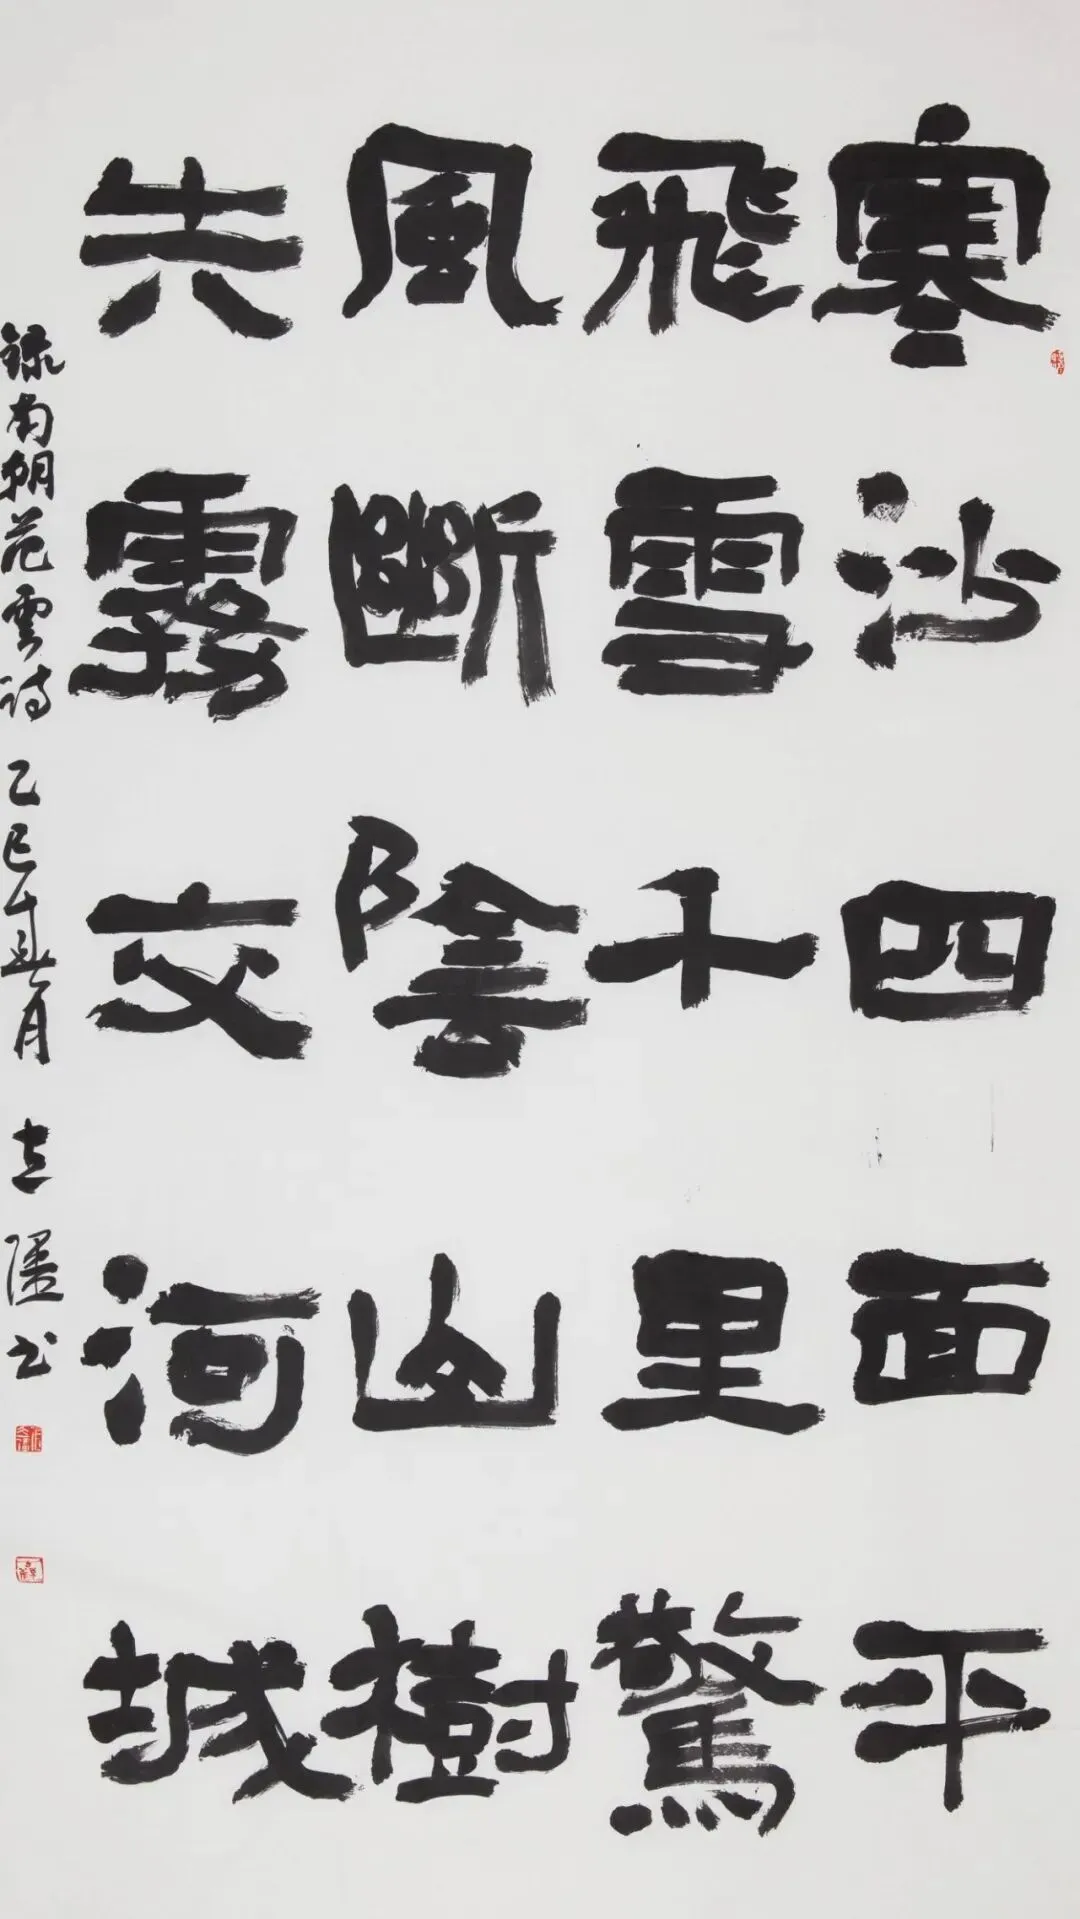 寒沙四面平
飛雪千里驚
風斷陰山樹
失霧交河城
録南朝范雲诗
乙巳
月
书